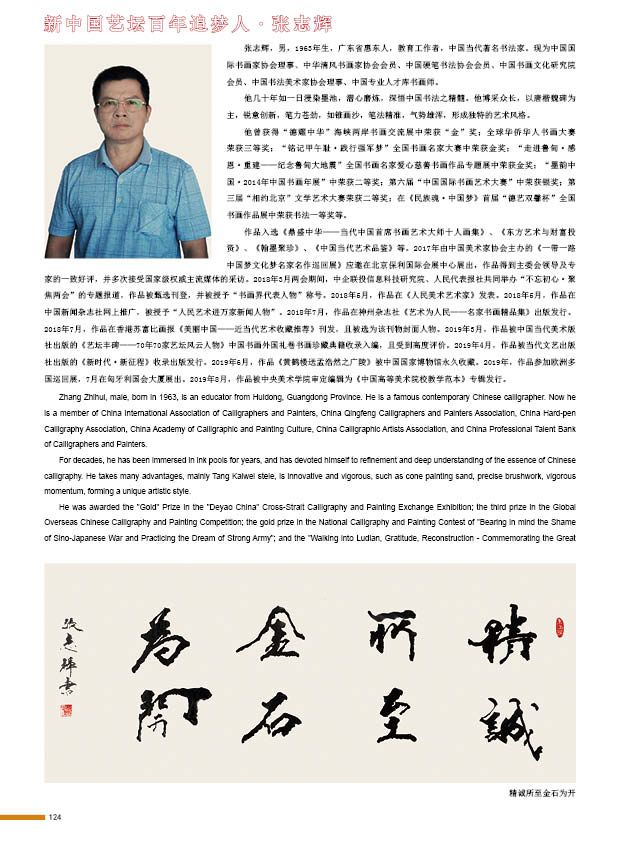 新中国艺坛百年追梦人·张志辉
张志辉，男，1963年生，广东省惠东人，教育工作者，中国当代著名书法家。现为中国国
际书画家协会理事、中华清风书画家协会会员、中国硬笔书法协会会员、中国书画文化研究院
会员、中国书法美术家协会理事、中国专业人才库书画师。
他几十年如一日浸染墨池，潜心磨炼，深悟中国书法之精髓。他博采众长，以唐楷魏碑为
主，锐意创新，笔力苍劲，如锥画沙，笔法精准，气势雄浑，形成独特的艺术风格。
他曾获得“德耀中华”海峡两岸书画交流展中荣获“金”奖；全球华侨华人书画大赛
荣获三等奖；“铭记甲午耻·践行强军梦”全国书画名家大赛中荣获金奖；“走进鲁甸·感
恩·重建——纪念鲁甸大地震”全国书画名家爱心慈善书画作品专题展中荣获金奖；“墨韵中
国·2014年中国书画年展”中荣获二等奖；第六届“中国国际书画艺术大赛”中荣获银奖；第
三届“相约北京”文学艺术大赛荣获二等奖；在《民族魂·中国梦》首届“德艺双馨杯”全国
书画作品展中荣获书法一等奖等。
作品入选《鼎盛中华——当代中国首席书画艺术大师十人画集》、《东方艺术与财富投
资》、《翰墨聚珍》、《中国当代艺术品鉴》等。2017年由中国美术家协会主办的《一带一路
中国梦文化梦名家名作巡回展》应邀在北京保利国际会展中心展出，作品得到主委会领导及专
家的一致好评，并多次接受国家级权威主流媒体的采访。2018年3月两会期间，中企联投信息科技研究院、人民代表报社共同举办“不忘初心·聚
焦两会”的专题报道，作品被甄选刊登，并被授予“书画界代表人物”称号。2018年5月，作品在《人民美术艺术家》发表。2018年6月，作品在
中国新闻杂志社网上推广，被授予“人民艺术进万家新闻人物”。2018年7月，作品在神州杂志社《艺术为人民——名家书画精品集》出版发行。
2018年7月，作品在香港苏富比画报《美丽中国——近当代艺术收藏推荐》刊发，且被选为该刊物封面人物。2019年3月，作品被中国当代美术版
社出版的《艺坛丰碑——70年70家艺坛风云人物》中国书画外国礼卷书画珍藏典籍收录入编，且受到高度评价。2019年4月，作品被当代文艺出版
社出版的《新时代·新征程》收录出版发行。2019年6月，作品《黄鹤楼送孟浩然之广陵》被中国国家博物馆永久收藏。2019年，作品参加欧洲多
国巡回展，7月在匈牙利国会大厦展出。2019年8月，作品被中央美术学院审定编辑为《中国高等美术院校教学范本》专辑发行。
Zhang Zhihui, male, born in 1963, is an educator from Huidong, Guangdong Province. He is a famous contemporary Chinese calligrapher. Now he
is a member of China International Association of Calligraphers and Painters, China Qingfeng Calligraphers and Painters Association, China Hard-pen
Calligraphy Association, China Academy of Calligraphic and Painting Culture, China Calligraphic Artists Association, and China Professional Talent Bank
of Calligraphers and Painters.
For decades, he has been immersed in ink pools for years, and has devoted himself to refinement and deep understanding of the essence of Chinese
calligraphy. He takes many advantages, mainly Tang Kaiwei stele, is innovative and vigorous, such as cone painting sand, precise brushwork, vigorous
momentum, forming a unique artistic style.
He was awarded the "Gold" Prize in the "Deyao China" Cross-Strait Calligraphy and Painting Exchange Exhibition; the third prize in the Global
Overseas Chinese Calligraphy and Painting Competition; the gold prize in the National Calligraphy and Painting Contest of "Bearing in mind the Shame
of Sino-Japanese War and Practicing the Dream of Strong Army"; and the "Walking into Ludian, Gratitude, Reconstruction - Commemorating the Great
精誠
所至
金石
为開
张志辉书
精诚所至金石为开
124